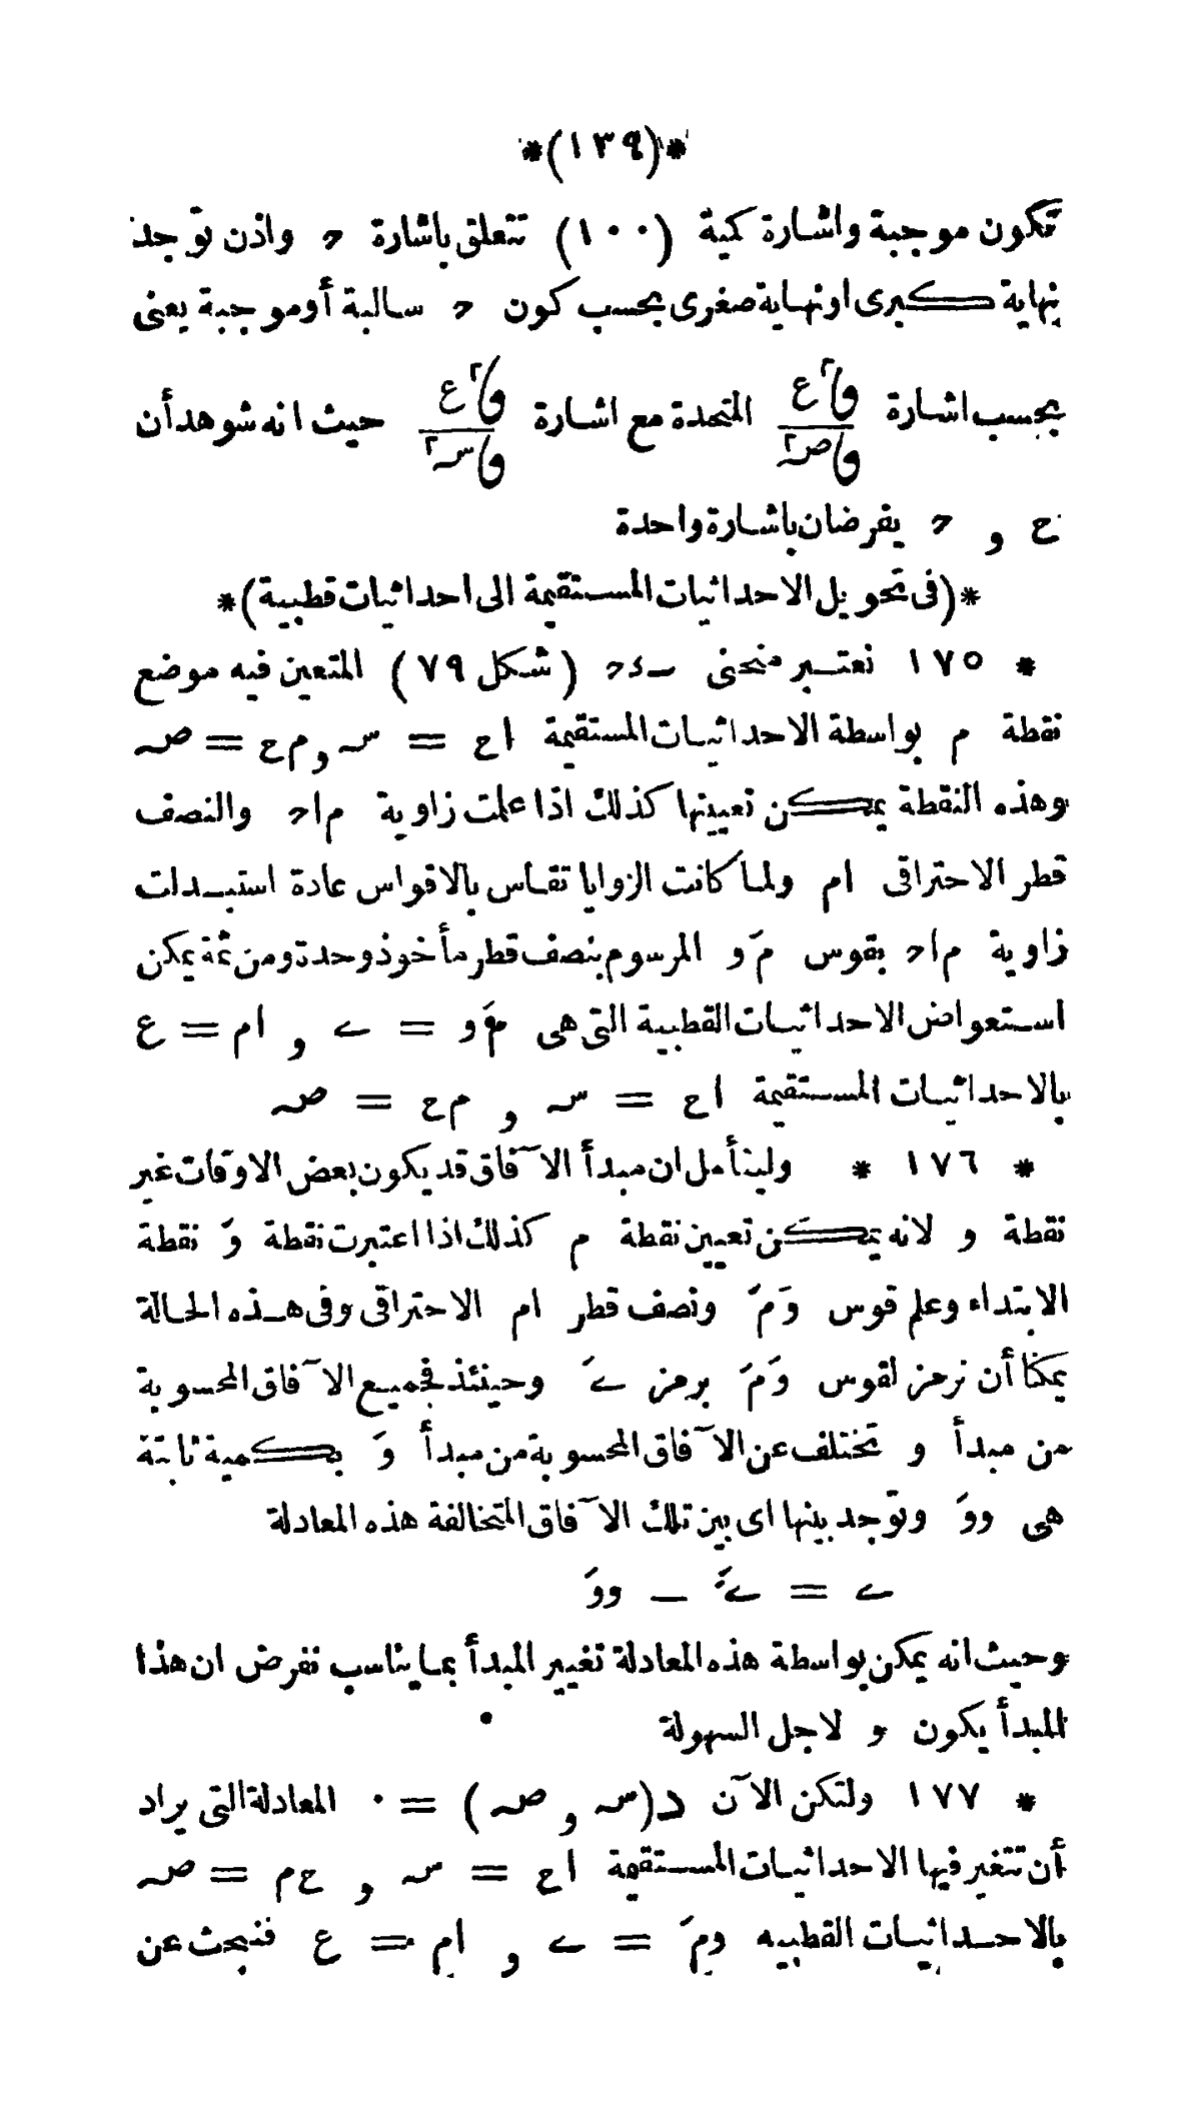 *(١٣٩)*
تكون موجبة واشارة كمية (١٠٠) تتعلق باشارة ح واذن توجد
نهاية كبرى او نهاية صغرى بحسب كون ح سالبة أو موجبة يعنى
بحسب اشارة ڡا٢ع / ڡاصہ٢ المتحدة مع اشارة ڡا٢ع / ڡاسہ٢ حيث انه شوهد أن
ع و ح يفرضان باشارة واحدة
*(فى تحويل الاحداثيات المستقيمة الى احداثيات قطبية)*
* ١٧٥ نعتبر منحنى ى (شكل ٧٩) المتعين فيه موضع
نقطة م بواسطة الاحداثيات المستقيمة اح = سہ و م ح = صہ
وهذه النقطة يمكن تعيينها كذلك اذا علمت زاوية م ا ح والنصف
قطر الاحتراقى ام ولما كانت الزوايا تقاس بالاقواس عادة استبدلت
زاوية م ا ح بقوس مَ و المرسوم بنصف قطر مأخوذ وحدة ومن ثمة يمكن
استعواض الاحداثيات القطبية التى هى مَ و = ے و ام = ع
بالاحداثيات المستقيمة اح = سہ و م ح = صہ
* ١٧٦ * ولينأمل ان مبدأ الآفاق قد يكون بعض الاوقات غير
نقطة و لانه يمكن تعيين نقطة م كذلك اذا اعتبرت نقطة وَ نقطة
الابتداء وعلم قوس وَ مَ ونصف قطر ام الاحتراقى وفى هذه الحالة
يمكنا أن نرمز لقوس وَ مَ برمز ےَ وحينئذ فجميع الآفاق المحسوبة
من مبدأ و تختلف عن الآفاق المحسوبة من مبدأ وَ بكمية ثابتة
هى ووَ وتوجد بينها اى بين تلك الآفاق المتخالفة هذه المعادلة
ے = ےَ — ووَ
وحيث انه يمكن بواسطة هذه المعادلة تغيير المبدأ بما يناسب نفرض ان هذا
المبدأ يكون و لاجل السهولة
* ١٧٧ ولتكن الآن د(سہ و صہ) = ٠ المعادلة التى يراد
أن تتغير فيها الاحداثيات المستقيمة اح = سہ و ح م = صہ
بالاحداثيات القطبيه ومَ = ے و ام = ع فنبحث عن